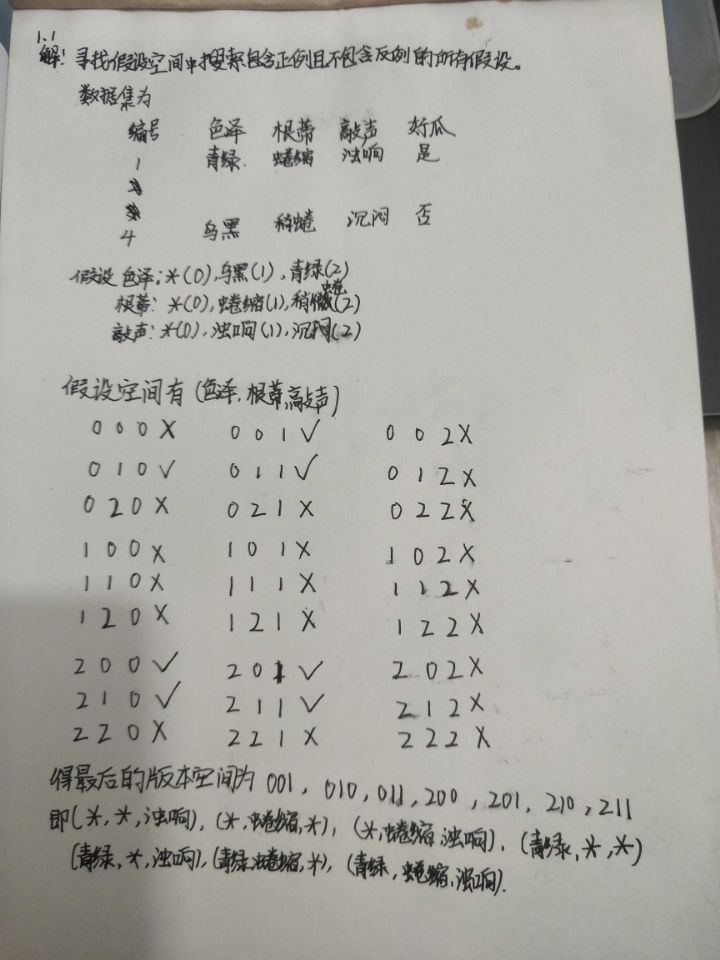 1.1
解: 寻找假设空间中搜索包含正例且不包含反例的所有假设。
数据集为
编号 色泽 根蒂 敲声 好瓜
1 青绿 蜷缩 浊响 是
4 乌黑 稍蜷 沉闷 否
假设 色泽: *(0), 乌黑(1), 青绿(2)
根蒂: *(0), 蜷缩(1), 稍蜷(2)
敲声: *(0), 浊响(1), 沉闷(2)
假设空间有 (色泽, 根蒂, 敲声)
000× 001✓ 002×
010✓ 011✓ 012×
020× 021× 022×
100× 101× 102×
110× 111× 112×
120× 121× 122×
200✓ 201✓ 202×
210✓ 211✓ 212×
220× 221× 222×
得最后的版本空间为 001, 010, 011, 200, 201, 210, 211
即(*, *, 浊响), (*, 蜷缩, *), (*, 蜷缩, 浊响), (青绿, *, *)
(青绿, *, 浊响), (青绿, 蜷缩, *), (青绿, 蜷缩, 浊响).